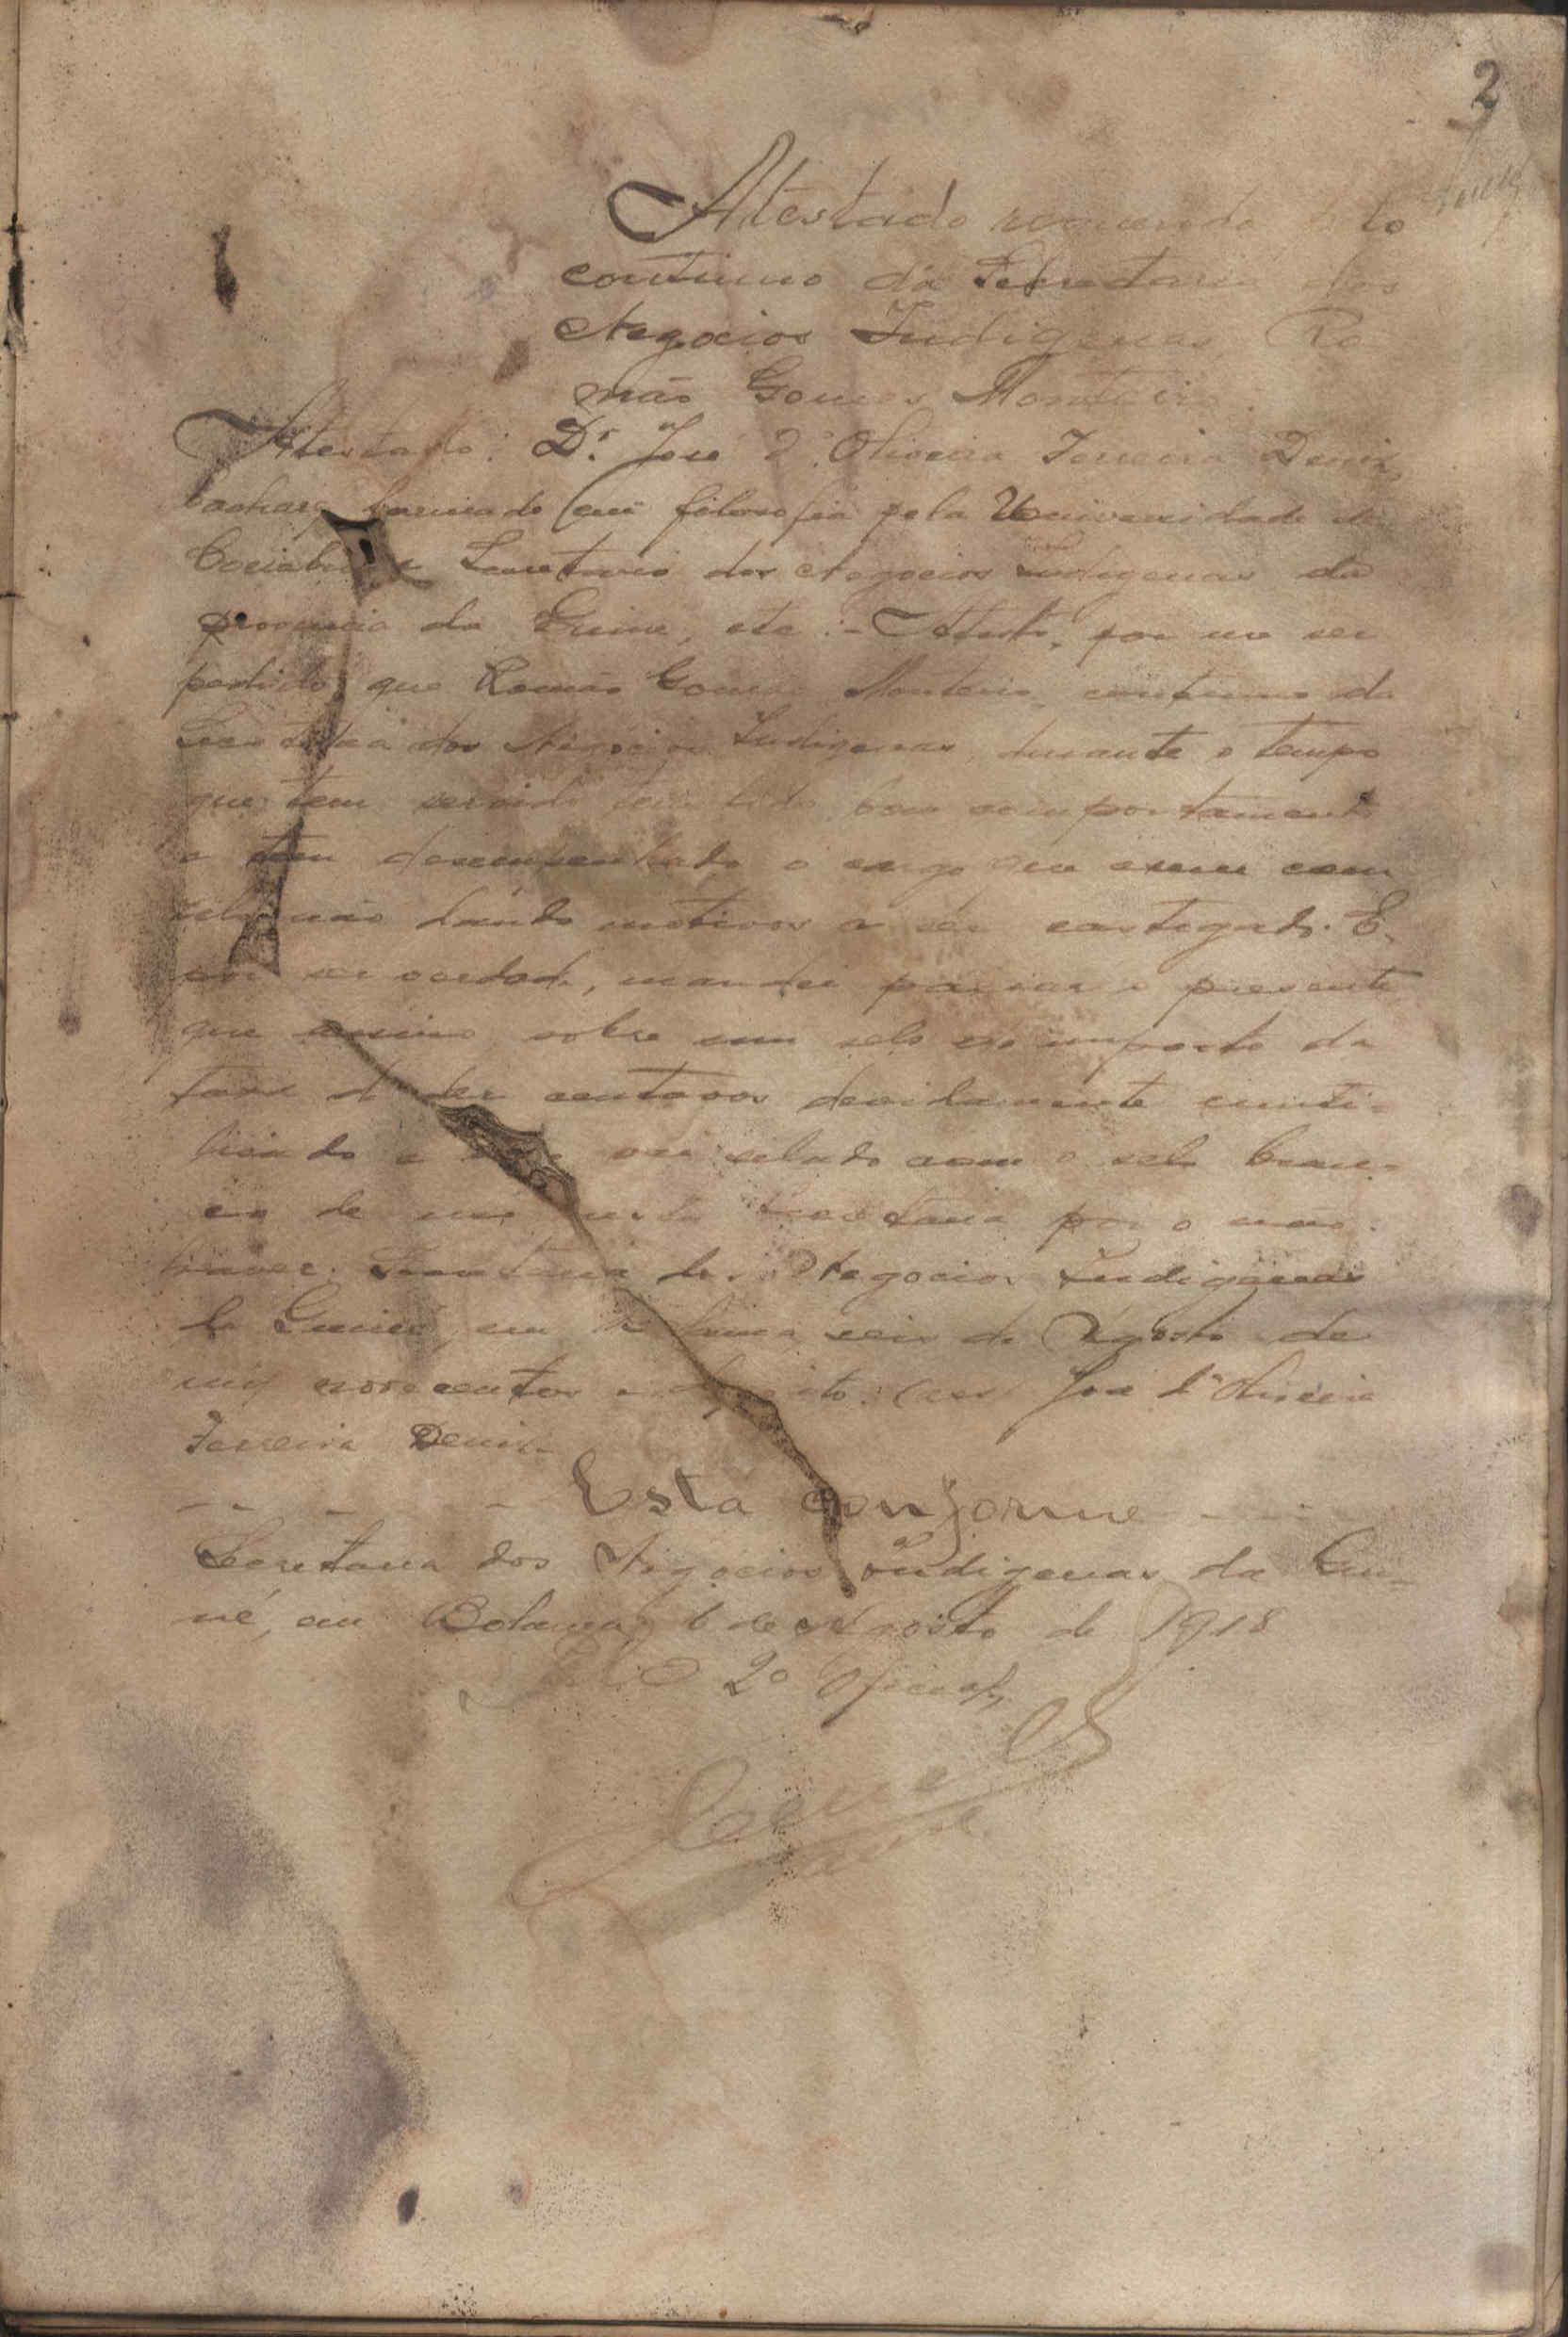 2
Atestado requerido pelo
continuo da Secretaria dos
Negocios Indigenas Ro-
mão Gomes Monteiro.
Atestado: Dr. José d'Oliveira Ferreira Deniz,
bacharel formado em filosofia pela Universidade de
Coimbra e Secretario dos Negocios Indigenas da
provincia da Guiné, etc:- Atesto, por me ser
pedido, que Romão Gomes Monteiro, continuo da
Secretaria dos Negocios Indigenas, durante o tempo
que tem servido tem tido bom comportamento
e tem desempenhado o cargo que exerce com
zelo não dando motivos a ser castigado. E,
por ser verdade, mandei passar o presente
que assino sobre um selo do imposto da
taxa de dez centavos devidamente inuti-
lisado e vai selado com o selo bran-
co de nesta Secretaria por o não
haver. Secretaria dos Negocios Indigenas
da Guiné, em Bolama, seis de Agosto de
mil novecentos e dezoito. (aa) José d'Oliveira
Ferreira Deniz-
Está conforme
Secretaria dos Negocios Indigenas da Gui-
né, em Bolama, 6 de Agosto de 1918
O 2º Oficial,